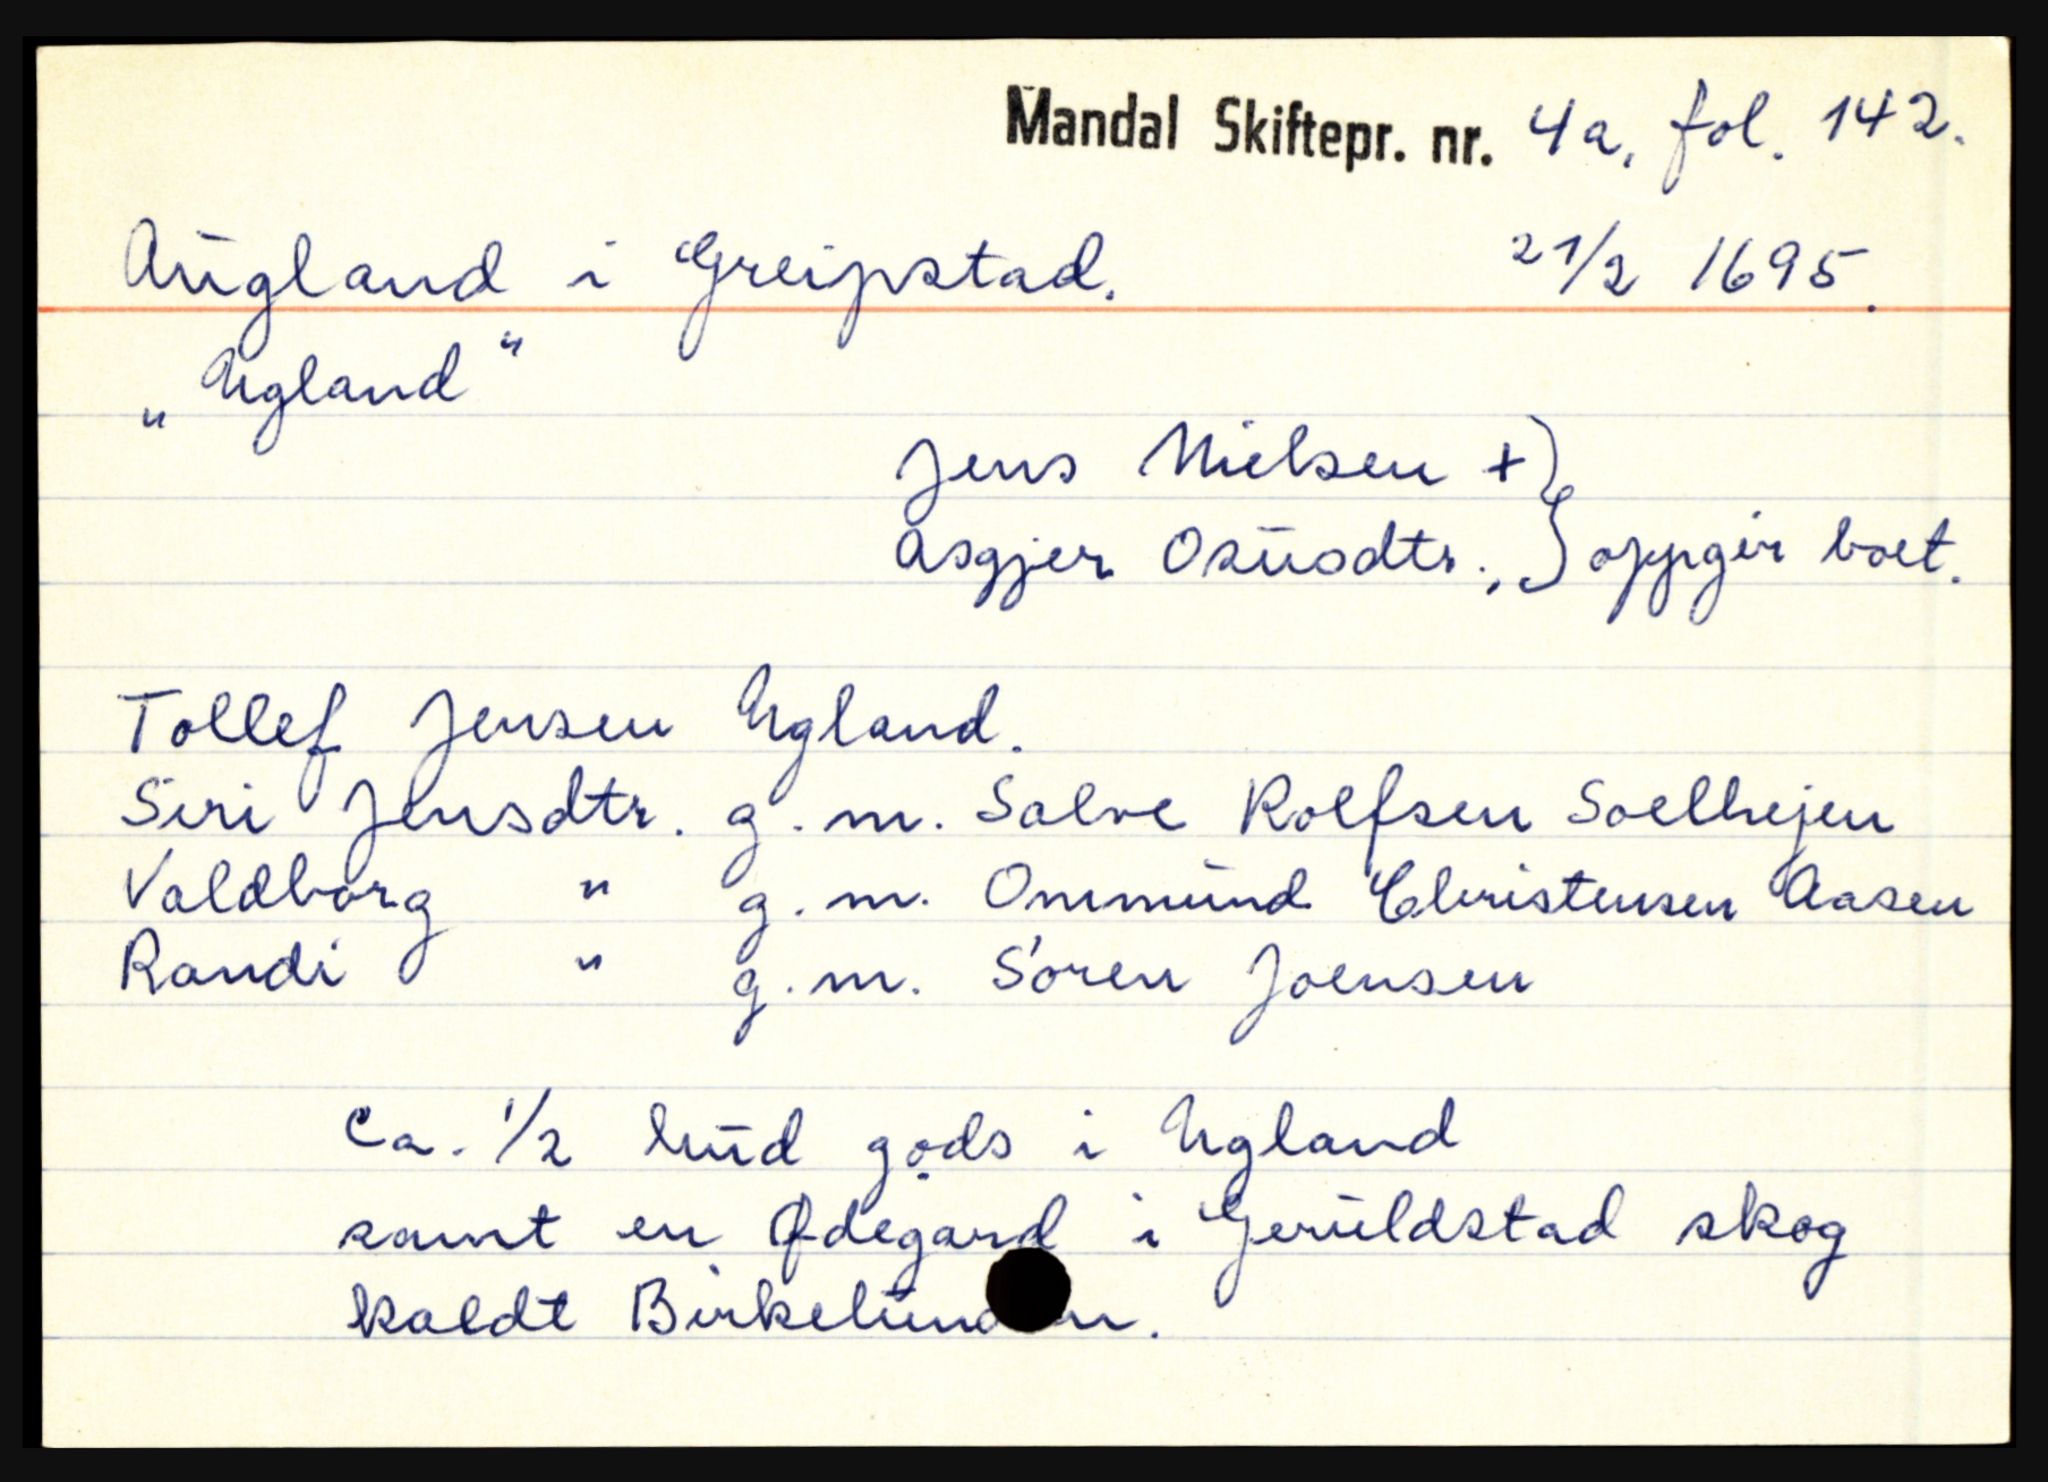 Mandal Skiftepr. nr. 4a, fol. 142.
Augland i Greipstad. 21/2 1695.
„Ugland"
Jens Nielsen +
Asgjer Osusdtr., } oppgir boet.
Tollef Jensen Ugland.
Siri Jensdtr. g.m. Salve Rolfsen Soelhejen
Valdborg " g.m. Ommund Christensen Aasen
Randi " g.m. Søren Joensen
Ca. 1/2 hud gods i Ugland
samt en Ødegard i Geruldstad skog
kaldt Birkelunden.